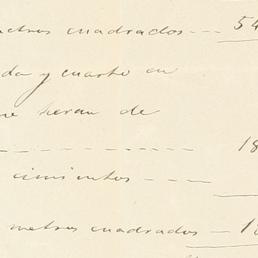 metros cuadrados --- 54
da y cuarto en
que heran de
------------ 18
cimientos ----
metros cuadrados - 1